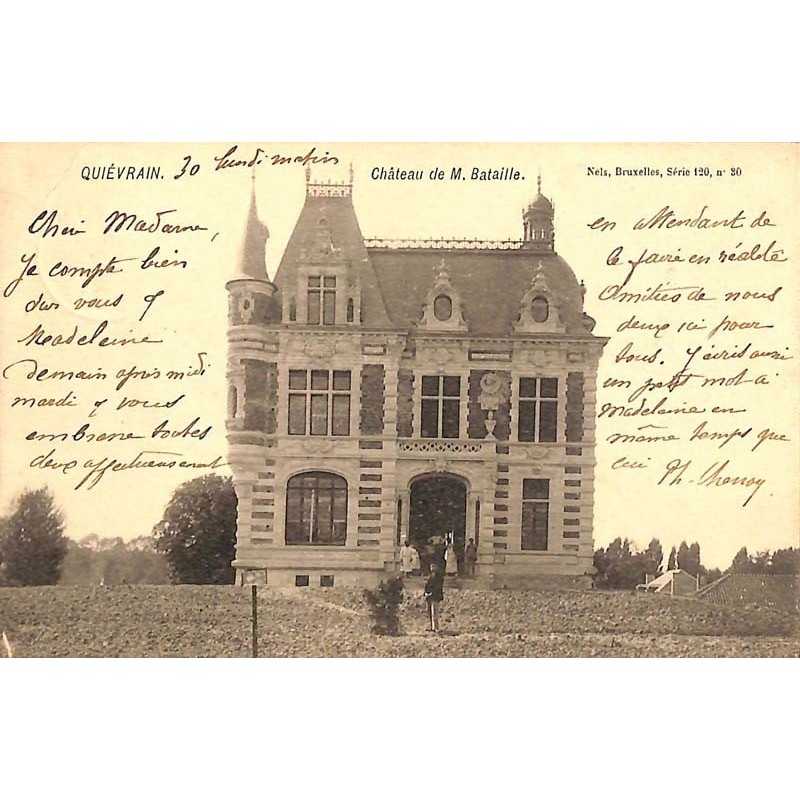 QUIÉVRAIN. 30 lundi matin
Château de M. Bataille.
Nels, Bruxelles, Série 120, n° 30
Chère Madame,
Je compte bien
sur vous &
Madeleine
demain après midi
mardi & vous
embrasse toutes
deux affectueusement
en attendant de
le faire en réalité
Amitiés de nous
deux ici pour
tous. J'écris aussi
un petit mot à
Madeleine en
même temps que
ceci